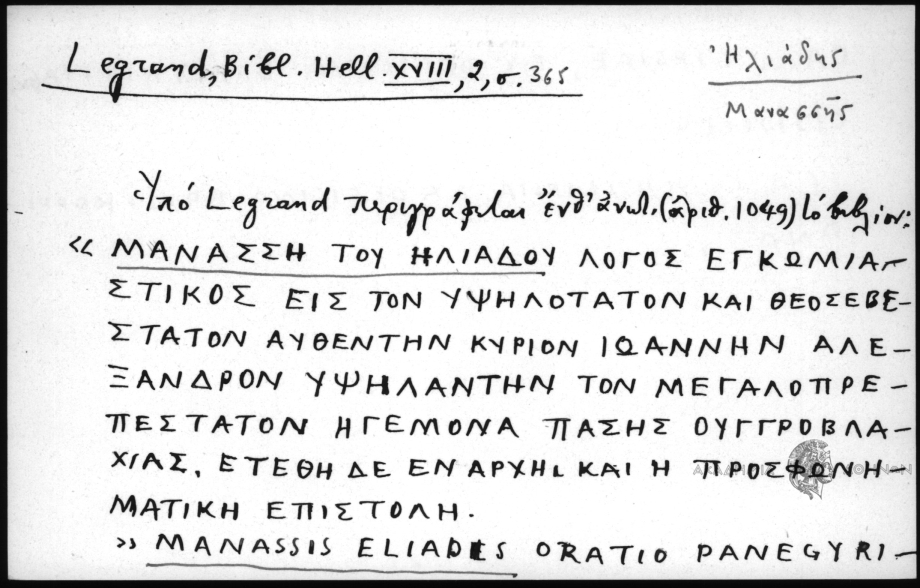 Legrand, Bibl. Hell. XVIII, 2, σ. 365
Ἠλιάδης
Μανασσῆς
Ὑπό Legrand περιγράφεται ἐνθ' ἀνωτ. (ἀριθ. 1049) τὸ βιβλίον:
« ΜΑΝΑΣΣΗ ΤΟΥ ΗΛΙΑΔΟΥ ΛΟΓΟΣ ΕΓΚΩΜΙΑ-
ΣΤΙΚΟΣ ΕΙΣ ΤΟΝ ΥΨΗΛΟΤΑΤΟΝ ΚΑΙ ΘΕΟΣΕΒΕ-
ΣΤΑΤΟΝ ΑΥΘΕΝΤΗΝ ΚΥΡΙΟΝ ΙΩΑΝΝΗΝ ΑΛΕ-
ΞΑΝΔΡΟΝ ΥΨΗΛΑΝΤΗΝ ΤΟΝ ΜΕΓΑΛΟΠΡΕ-
ΠΕΣΤΑΤΟΝ ΗΓΕΜΟΝΑ ΠΑΣΗΣ ΟΥΓΓΡΟΒΛΑ-
ΧΙΑΣ. ΕΤΕΘΗ ΔΕ ΕΝ ΑΡΧΗι ΚΑΙ Η ΠΡΟΣΦΩΝΗ-
ΜΑΤΙΚΗ ΕΠΙΣΤΟΛΗ.
» MANASSIS ELIADES ORATIO PANEGYRI-